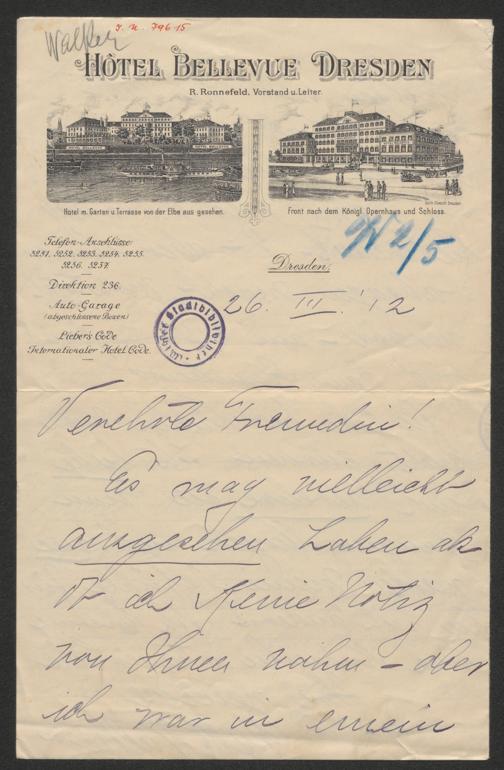 J. N. 79615
Walker
HÔTEL BELLEVUE DRESDEN
R. Ronnefeld, Vorstand u. Leiter.
Hotel m. Garten u. Terrasse von der Elbe aus gesehen.
Front nach dem Königl. Opernhaus und Schloss.
Telefon-Anschlüsse
5251, 5252, 5253, 5254, 5255.
5256, 5257.
Direktion 236.
Auto-Garage
(abgeschlossene Boxen)
Lieber's Code
Internationaler Hotel Code.
Dresden,
2/5
26. III. '12
Wiener Stadtbibliothek
Verehrte Freundin!
Es mag vielleicht
ausgesehen haben als
ob ich keine Notiz
von Ihnen nähm – aber
ich war in einem